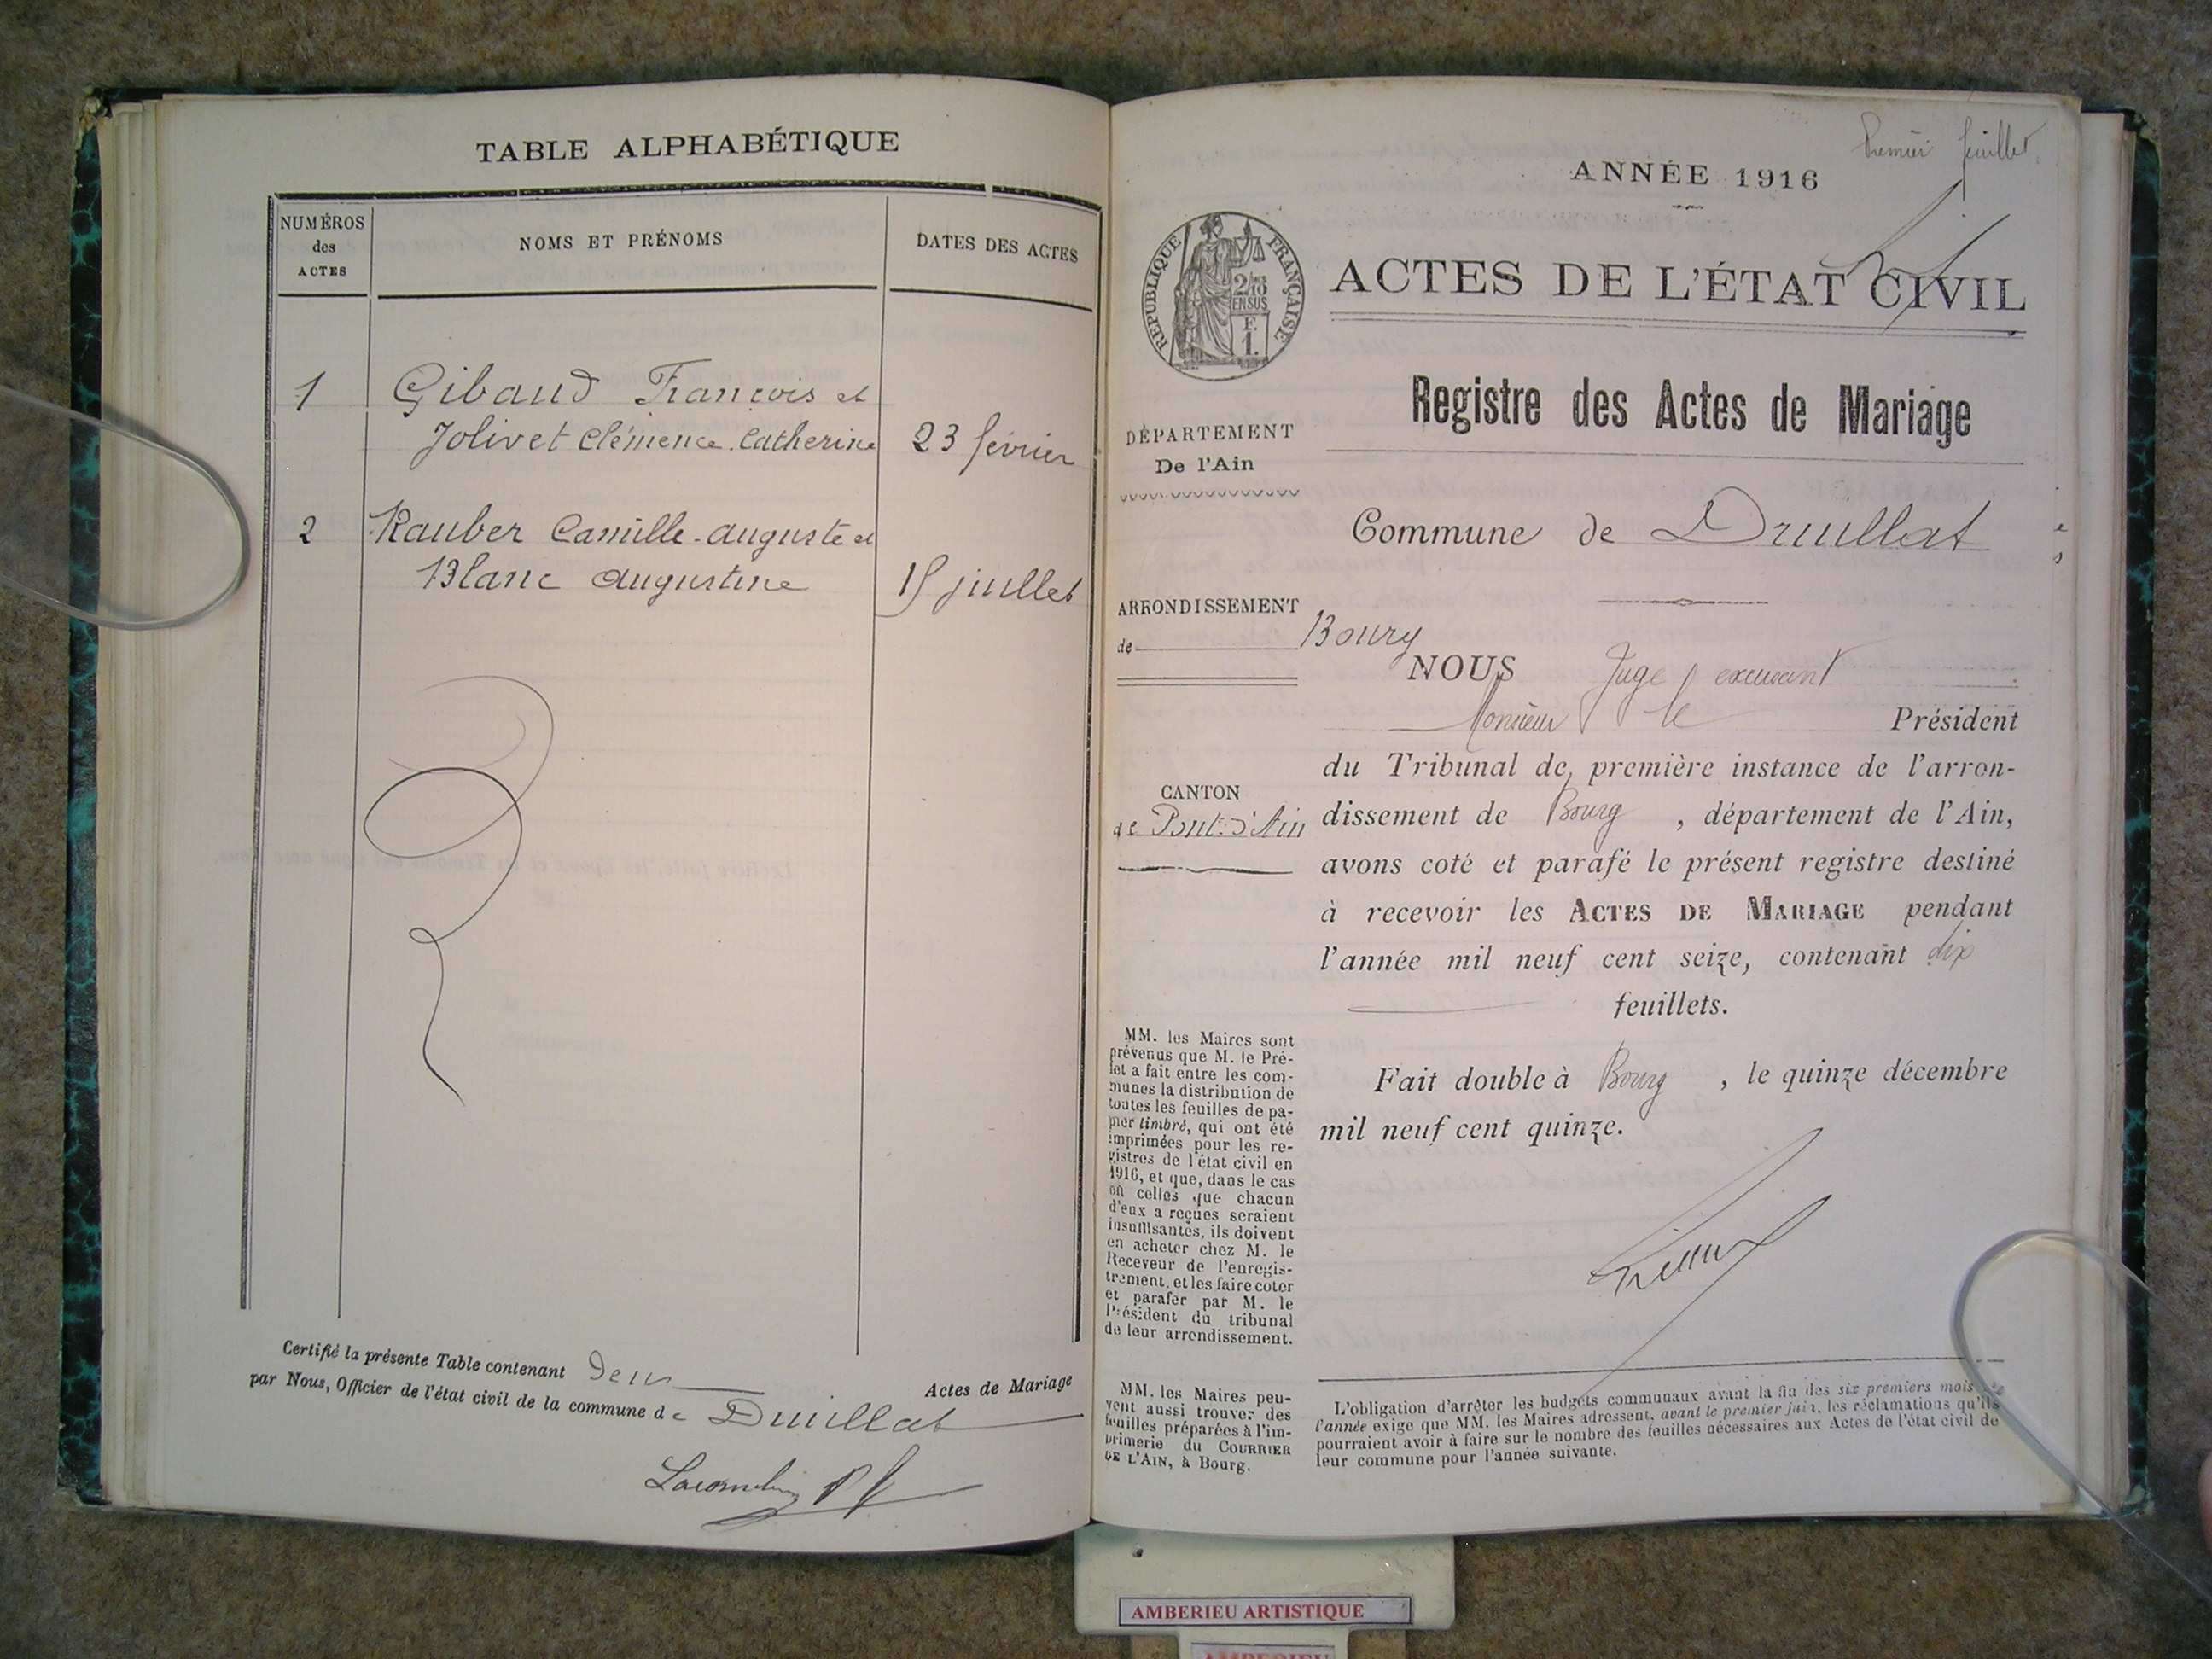 TABLE ALPHABÉTIQUE
NUMÉROS
des
ACTES
NOMS ET PRÉNOMS
DATES DES ACTES
1
Gibaud François et
Jolivet Clémence Catherine
23 février
2
Rauber Camille-auguste et
Blanc augustine
15 juillet
Certifié la présente Table contenant deux
Actes de Mariage
par Nous, Officier de l'état civil de la commune de Druillat
Premier feuillet
ANNÉE 1916
RÉPUBLIQUE FRANÇAISE
2/10
EN SUS
F.
1.
ACTES DE L'ÉTAT CIVIL
Registre des Actes de Mariage
DÉPARTEMENT
De l'Ain
Commune de Druillat
ARRONDISSEMENT
de Bourg
CANTON
de Pont-d'Ain
NOUS Juge excusant
Monsieur le Président
du Tribunal de première instance de l'arron-
dissement de Bourg, département de l'Ain,
avons coté et parafé le présent registre destiné
à recevoir les ACTES DE MARIAGE pendant
l'année mil neuf cent seize, contenant dix
feuillets.
Fait double à Bourg, le quinze décembre
mil neuf cent quinze.
MM. les Maires sont
prévenus que M. le Pré-
fet a fait entre les com-
munes la distribution de
toutes les feuilles de pa-
pier timbré, qui ont été
imprimées pour les re-
gistres de l'état civil en
1916, et que, dans le cas
où celles que chacun
d'eux a reçues seraient
insuffisantes, ils doivent
en acheter chez M. le
Receveur de l'enregis-
trement, et les faire coter
et parafer par M. le
Président du tribunal
de leur arrondissement.
MM. les Maires peu-
vent aussi trouver des
feuilles préparées à l'im-
primerie du COURRIER
DE L'AIN, à Bourg.
L'obligation d'arrêter les budgets communaux avant la fin des six premiers mois de
l'année exige que MM. les Maires adressent, avant le premier juin, les réclamations qu'ils
pourraient avoir à faire sur le nombre des feuilles nécessaires aux Actes de l'état civil de
leur commune pour l'année suivante.
AMBERIEU ARTISTIQUE
AMBERIEU